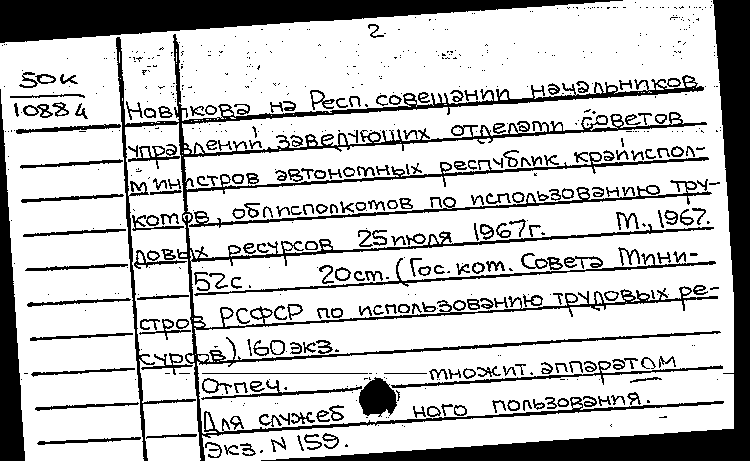 2
50к
10884
Новикова на Респ. совещании начальников
управлений, заведующих отделами Советов
министров автономных республик, крайиспол-
комов, облисполкомов по использованию тру-
довых ресурсов 25 июля 1967г. М., 1967.
52с. 20см. (Гос. ком. Совета Мини-
стров РСФСР по использованию трудовых ре-
сурсов). 160 экз.
Отпеч. множит. аппаратом
Для служебного пользования.
Экз. N 159.